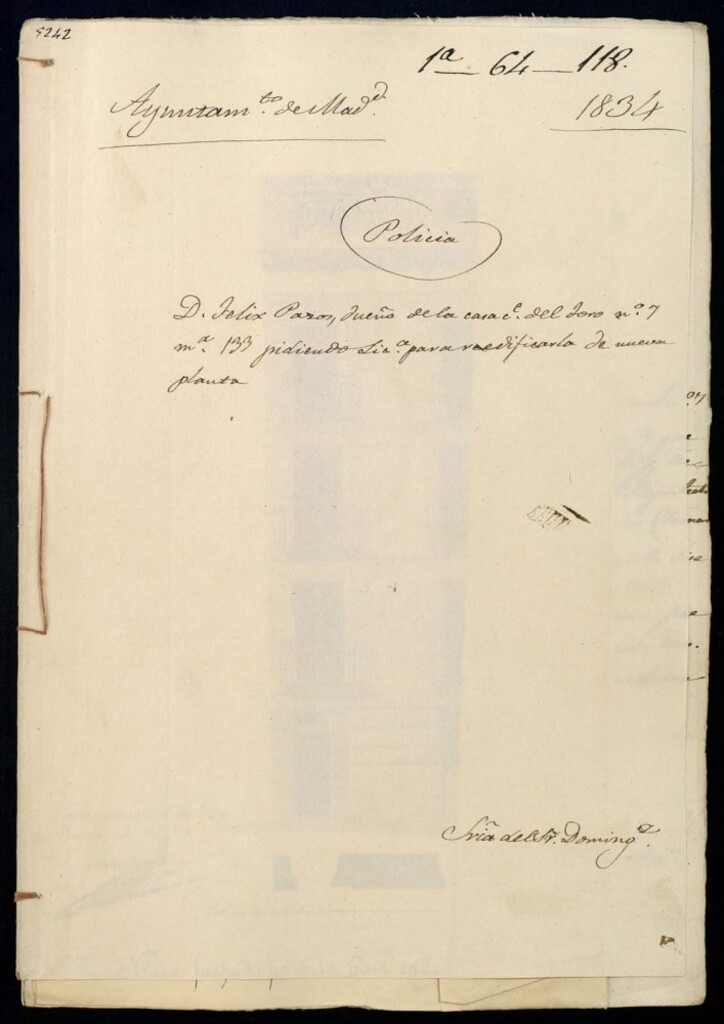 5242
1ª 64 118.
Ayuntam.to de Mad.d
1834
Policia
D. Felix Pazos, dueño de la casa c.e del Toro n.º 7
m.ª 133 pidiendo Lic.ª para reedificarla de nueva
planta
Sria del Sr. Doming.z